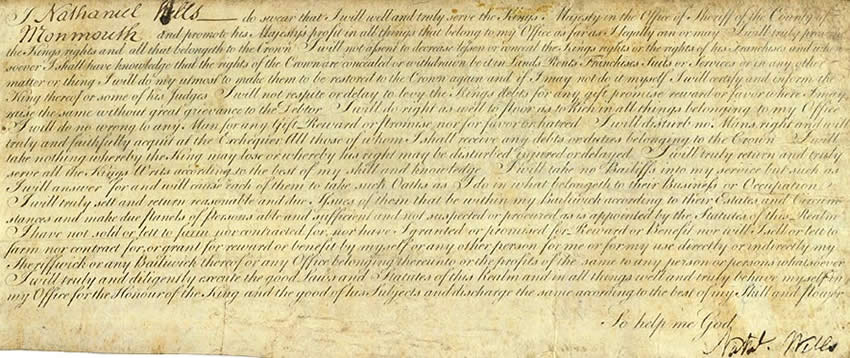 I Nathaniel Wells do swear that I will well and truly serve the Kings Majesty in the Office of Sheriff of the County of
Monmouth and promote his Majestys profit in all things that belong to my Office as far as I legally can or may I will truly
the Kings rights and all that belongeth to the Crown I will not assent to decrease lessen or conceal the Kings rights or the rights of his Franchises and
soever I shall have knowledge that the rights of the Crown are concealed or withdrawn be it in Lands Rents Franchises Suits or Services or in any other
matter or thing I will do my utmost to make them to be restored to the Crown again and if I may not do it myself I will certify and inform the
King thereof or some of his Judges I will not respite or delay to levy the Kings debts for any gift promise reward or favor where I may
raise the same without great grievance to the Debtor I will do right as well to Poor as to Rich in all things belonging to my Office
I will do no wrong to any Man for any Gift Reward or Promise nor for favor or hatred I will disturb no Mans right and will
truly and faithfully acquit at the Exchequer All those of whom I shall receive any debts or duties belonging to the Crown I will
take nothing whereby the King may lose or whereby his right may be disturbed injured or delayed I will truly return and truly
serve all the Kings Writs according to the best of my skill and knowledge I will take no Bailiffs into my service but such as
I will answer for and will cause each of them to take such Oaths as I do in what belongeth to their Business or Occupation
I will truly sett and return reasonable and due Issues of them that be within my Bailiwick according to their Estates and Circum
stances and make due Panels of Persons able and sufficient and not suspected or procured as is appointed by the Statutes of this Realm
I have not sold or lett to farm nor contracted for nor have I granted or promised for Reward or Benefit nor will I sell or lett to
farm nor contract for or grant for reward or benefit by myself or any other person for me or for my use directly or indirectly my
Sheriffwick or any Bailiwick thereof or any Office belonging thereunto or the profits of the same to any person or persons whatsoever
I will truly and diligently execute the good Laws and Statutes of this Realm and in all things well and truly behave myself in
my Office for the Honour of the King and the good of his Subjects and discharge the same according to the best of my Skill and Power
So help me God
Nathl. Wells